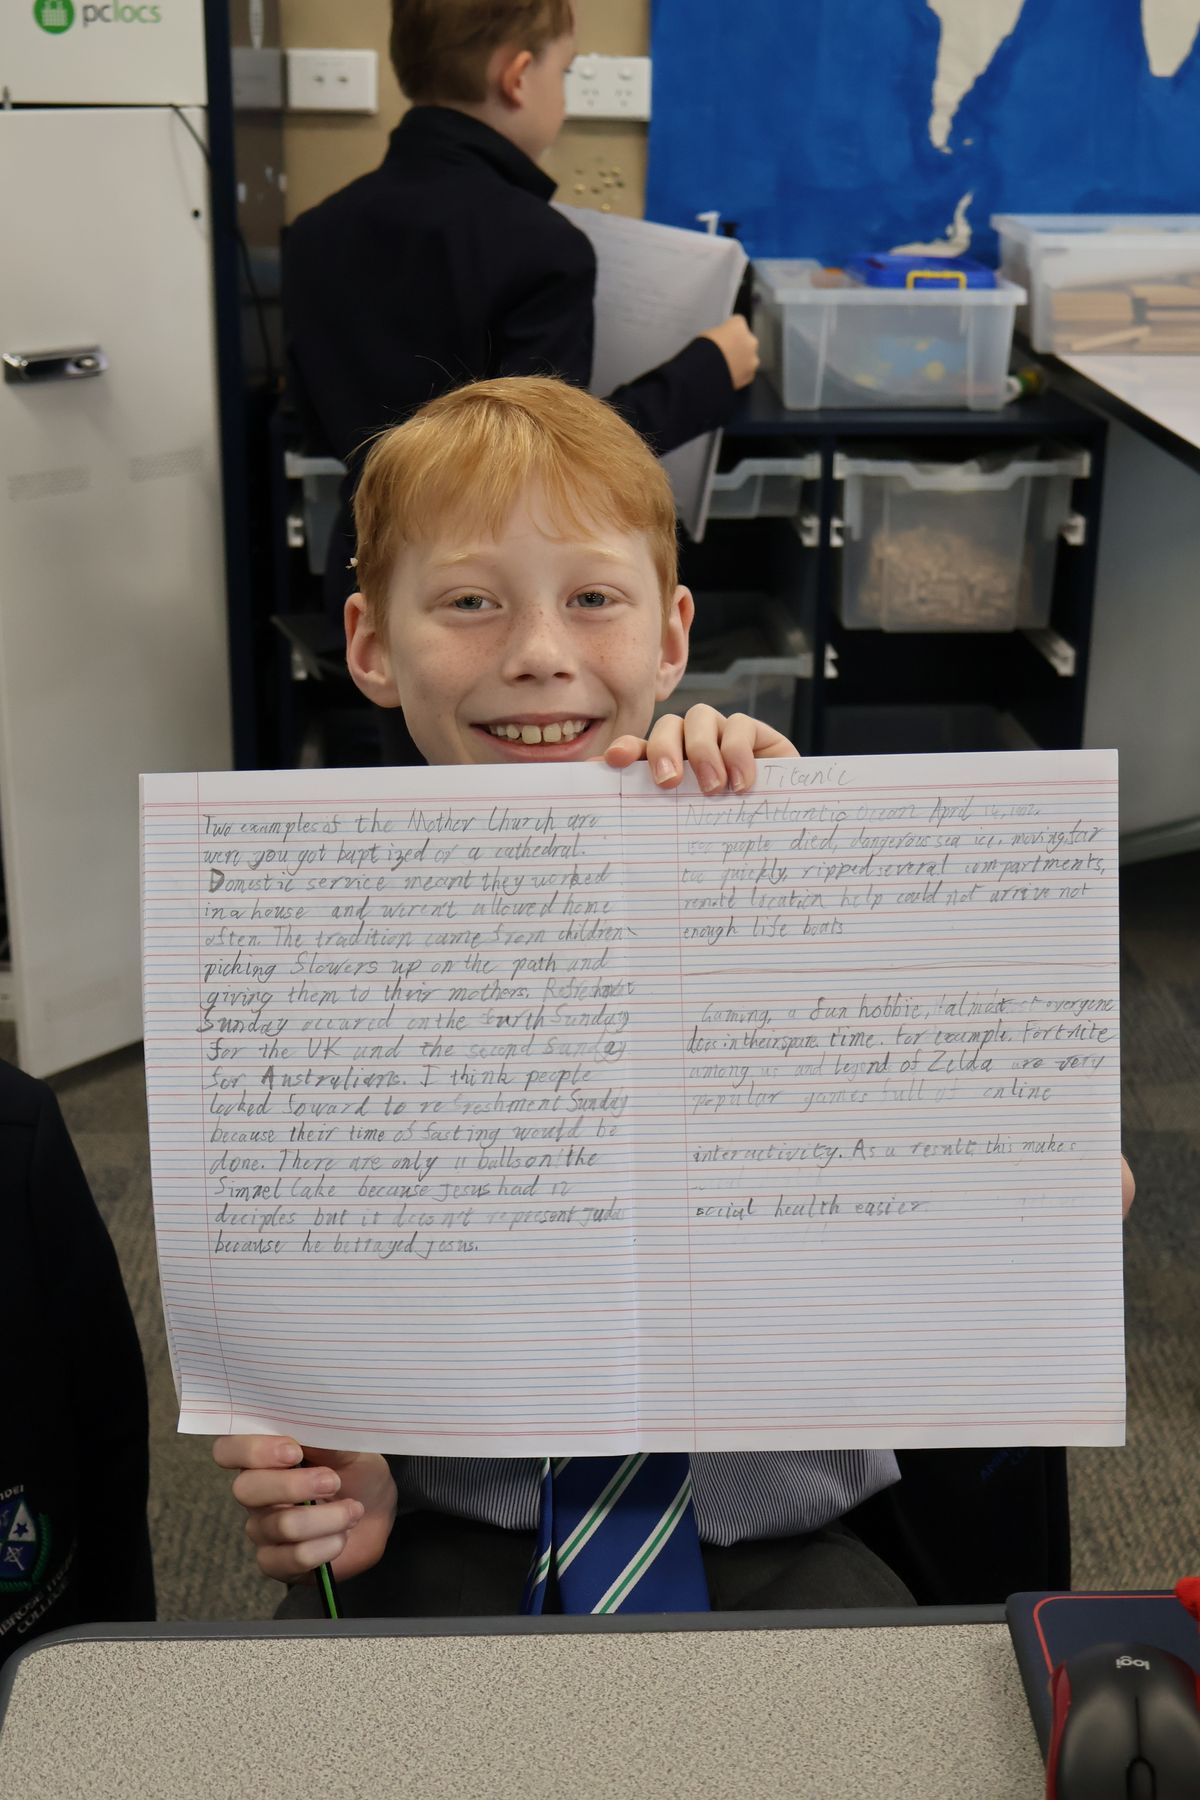 pclocs
Two examples of the Mother Church are
were you got baptized or a cathedral.
Domestic service meant they worked
in a house and weren't allowed home
often. The tradition came from children
picking flowers up on the path and
giving them to their mothers. Refreshment
Sunday occured on the fourth Sunday
for the UK and the second Sunday
for Australians. I think people
looked foward to refreshment Sunday
because their time of fasting would be
done. There are only 11 balls on the
Simnel Cake because Jesus had 12
deciples but it does n't represent Judas
because he betrayed Jesus.
Titanic
North Atlantic Ocean April
people died, dangerous sea ice, moving far
too quickly, ripped several compartments,
remote location help could not arrive not
enough life boats
Gaming, a fun hobbie, almost everyone
does in their spare time. For example, Fortnite
among us and legend of Zelda are very
popular games full of online
interactivity. As a result, this makes
social health easier.
COLLEGE
logi